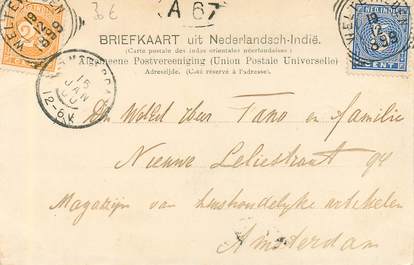 3x€
A 67
WELTEVREDEN
NED-INDIE
CENT
BRIEFKAART uit Nederlandsch-Indië.
(Carte postale des Indes orientales néerlandaises)
Algemeene Postvereeniging (Union Postale Universelle)
Adreszijde. (Côté réservé à l'adresse).
15
JAN
12-6
De WelEd Heer Tano en familie
Nieuwe Leliestraat 94
Magazijn van huishoudelijke artikelen
Amsterdam